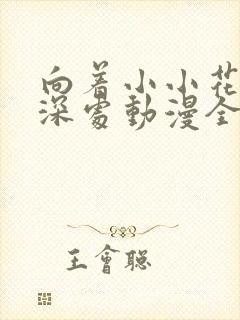 向着小小花
深處動漫全
王會聰